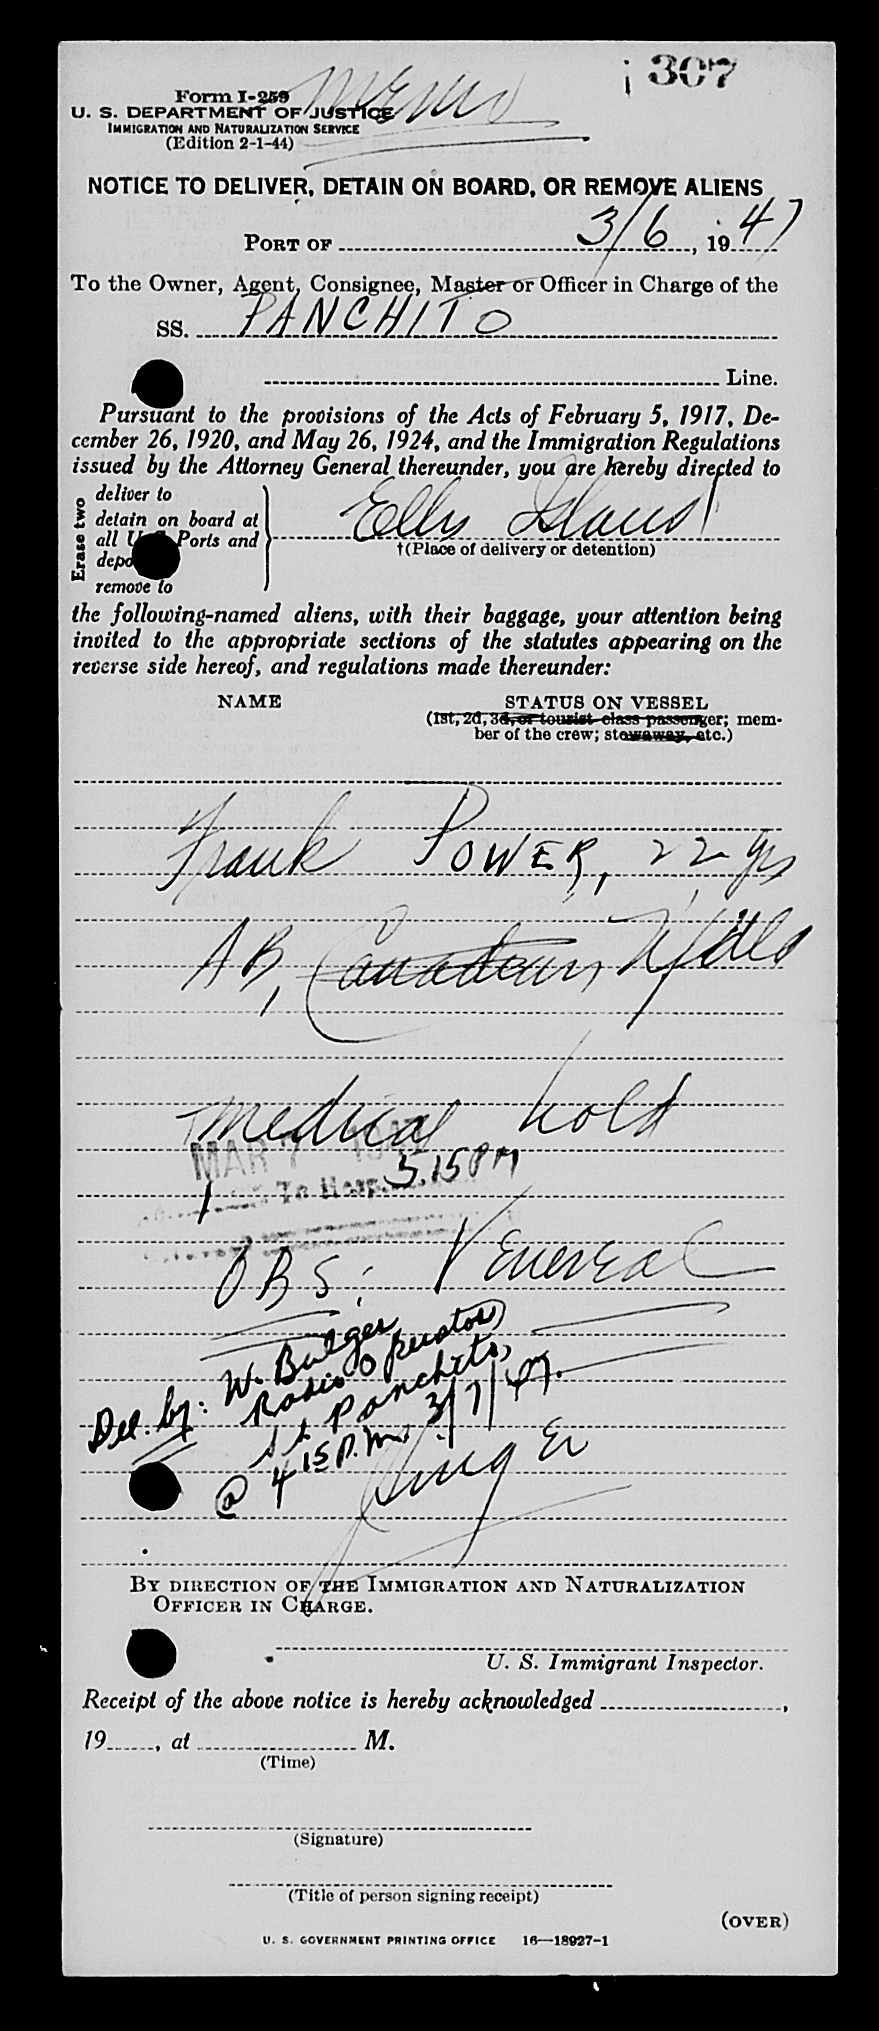 307
Memo
Form I-259
U. S. DEPARTMENT OF JUSTICE
IMMIGRATION AND NATURALIZATION SERVICE
(Edition 2-1-44)
NOTICE TO DELIVER, DETAIN ON BOARD, OR REMOVE ALIENS
PORT OF 3/6, 1947
To the Owner, Agent, Consignee, Master or Officer in Charge of the
SS. PANCHITO
Line.
Pursuant to the provisions of the Acts of February 5, 1917, De-
cember 26, 1920, and May 26, 1924, and the Immigration Regulations
issued by the Attorney General thereunder, you are hereby directed to
Erase two
deliver to
detain on board at
all U. S. Ports and
depo
remove to
Ellis Island
†(Place of delivery or detention)
the following-named aliens, with their baggage, your attention being
invited to the appropriate sections of the statutes appearing on the
reverse side hereof, and regulations made thereunder:
NAME STATUS ON VESSEL
(1st, 2d, 3d, or tourist class passenger; mem-
ber of the crew; stowaway, etc.)
Frank POWER, 22 yrs
AB, Canadian, Nfdld
Medical hold
MAR 7 1947
5.15 PM
To Hosp.
OBS: Venereal
Del. by: W. Bulger
Radio Operator
SS Panchito,
@ 4 15 P.M. 3/7/47.
BY DIRECTION OF THE IMMIGRATION AND NATURALIZATION
OFFICER IN CHARGE.
U. S. Immigrant Inspector.
Receipt of the above notice is hereby acknowledged ,
19 , at M.
(Time)
(Signature)
(Title of person signing receipt)
(OVER)
U. S. GOVERNMENT PRINTING OFFICE 16—18927-1